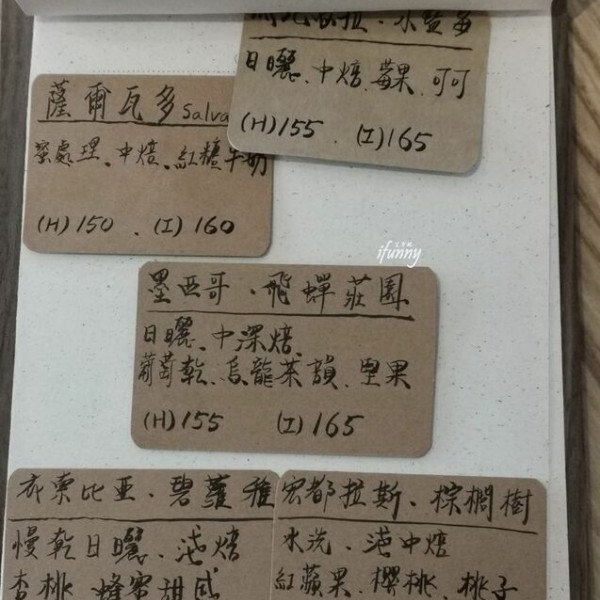 日曬、中焙、莓果、可可
(H)155 、(I)165
薩爾瓦多 Salva
蜜處理、中焙、紅糖牛奶
(H)150 、(I)160
ifunny
墨西哥、飛蟬莊園
日曬、中深焙
葡萄乾、烏龍茶韻、堅果
(H)155 (I)165
衣索比亞、碧蘿雅
慢乾日曬、淺焙
杏桃 蜂蜜甜感
宏都拉斯、棕櫚樹
水洗、淺中焙
紅蘋果、櫻桃、桃子